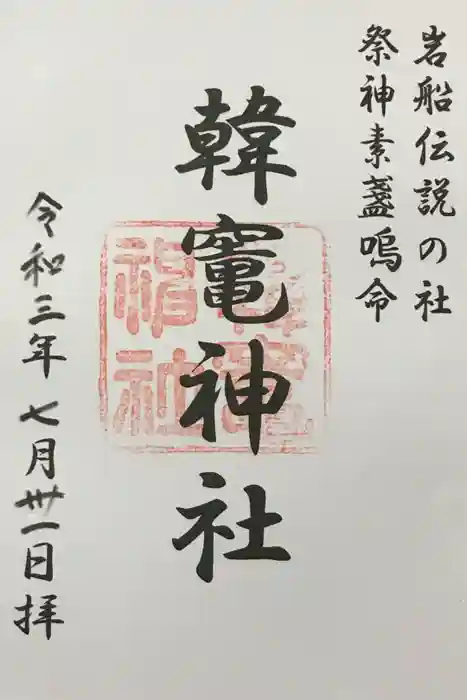 岩船伝説の社
祭神素盞嗚命
韓竈神社
令和三年七月卅一日拝
韓竈
神社